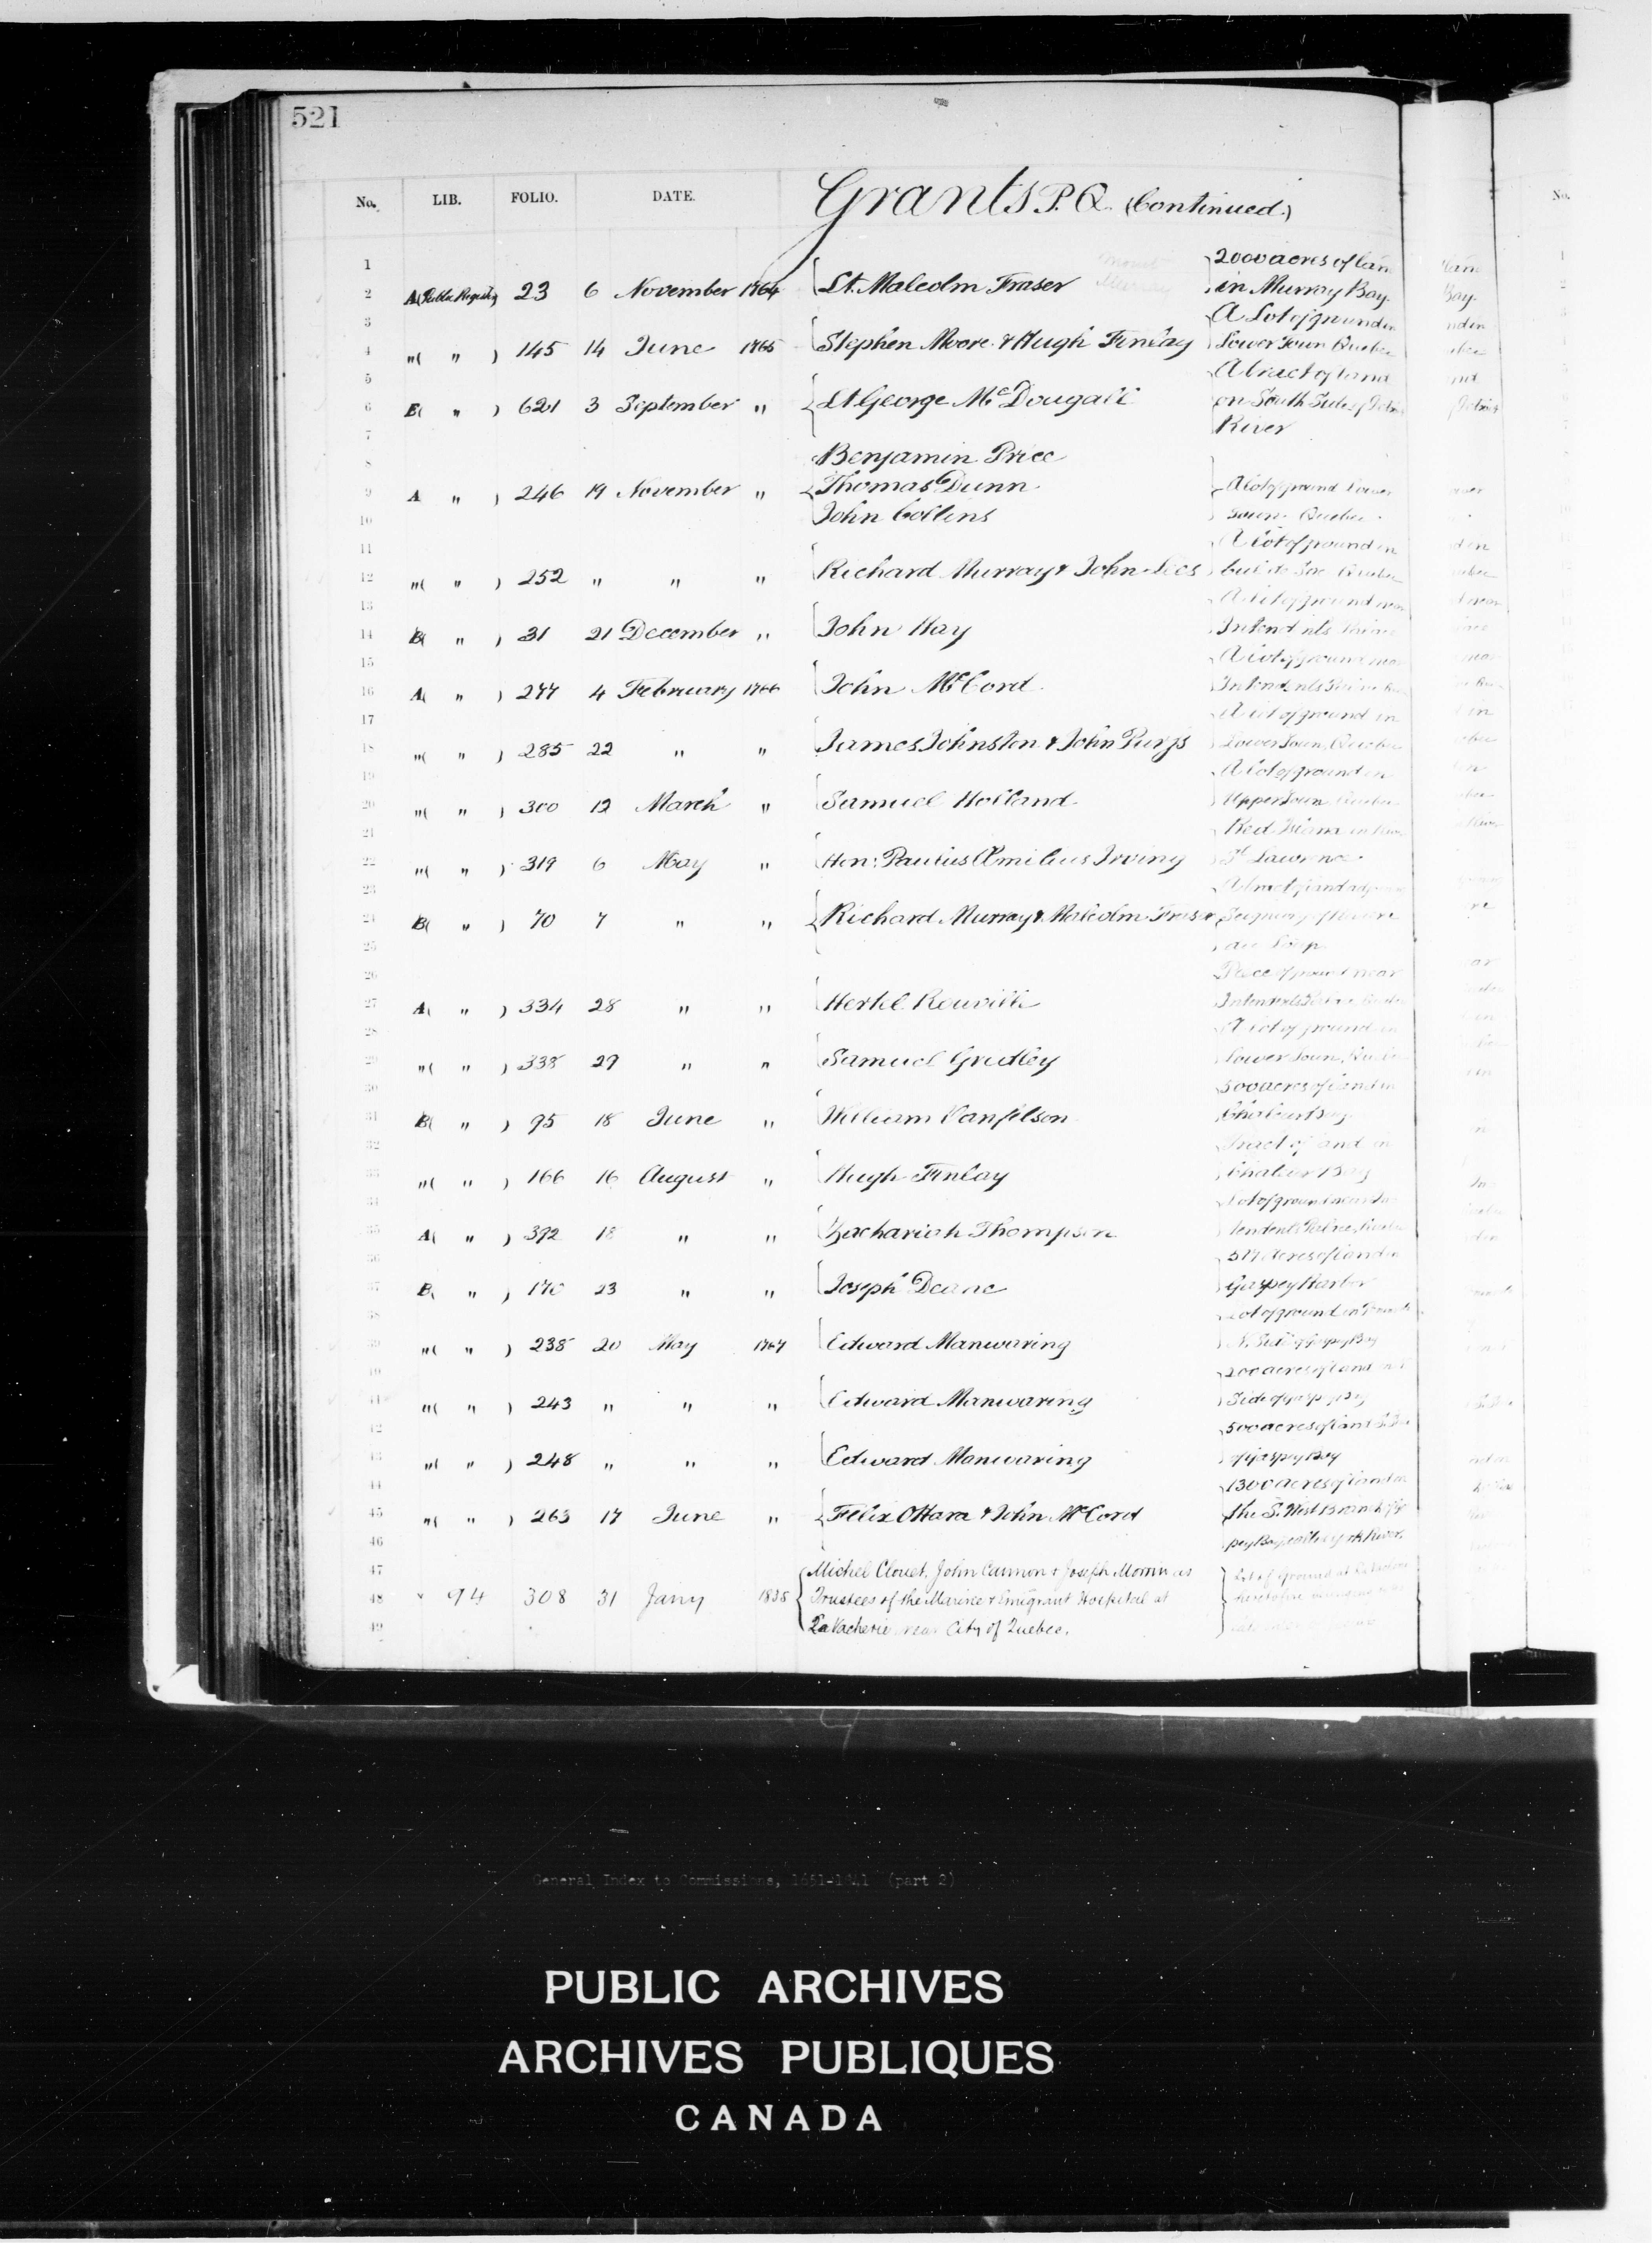 521
No. LIB. FOLIO. DATE. Grants P.Q. (Continued.)
1 2000 acres of lan
2 A (Public Register) 23 6 November 1764 Lt. Malcolm Fraser in Murray Bay.
3 A Lot of ground in
4 "( " ) 145 14 June 1765 Stephen Moore & Hugh Finlay Lower Town Quebec
5 A tract of land
6 B( " ) 621 3 September " Lt George McDougall on South Side of
7 River
8 Benjamin Price
9 A " ) 246 19 November " Thomas Dunn A lot of ground Lower
10 John Collins Town Quebec.
11 A lot of ground in
12 "( " ) 252 " " " Richard Murray & John Lees Cul de Sac Quebec
13 A lot of ground near
14 B( " ) 31 21 December " John Hay Intendants Palace
15 A lot of ground near
16 A( " ) 277 4 February 1766 John McCord
17 A lot of ground in
18 "( " ) 285 22 " " James Johnston & John Purss Lower Town, Quebec
19 A lot of ground in
20 "( " ) 300 12 March " Samuel Holland Upper Town Quebec
21 Red Island in
22 "( " ) 319 6 May " Hon: Paulus Æmilius Irving St Lawrence.
23 A tract of land
24 B( " ) 70 7 " " Richard Murray & Malcolm Fraser Seigniory of Riviere
25 du Loup
26 Piece of ground near
27 A( " ) 334 28 " " Hertel Rouville
28 A lot of ground in
29 "( " ) 338 29 " " Samuel Gridley Lower Town, Quebec
30 500 acres of land in
31 B( " ) 95 18 June " William Vanfelson Chaleur Bay.
32 Tract of land in
33 "( " ) 166 16 August " Hugh Finlay Chaleur Bay
34 Lot of ground near In
35 A( " ) 392 18 " " Zachariah Thompson tendents Palace, Quebec
36 acres of land in
37 B( " ) 170 23 " " Joseph Deane Gaspey Harbor
38 Lot of ground in
39 "( " ) 238 20 May 1767 Edward Manwaring N. Side of Gaspey Bay
40 200 acres of land
41 "( " ) 243 " " " Edward Manwaring Side of Gaspey Bay
42 500 acres of land
43 "( " ) 248 " " " Edward Manwaring of Gaspey Bay
44 1300 acres of land on
45 "( " ) 263 17 June " Felix OHara & John McCord the S. West Branch of Gas
46 pey Bay, called York River.
47 Michel Clouet, John Cannon & Joseph Morrin as Lot of Ground at
48 94 308 31 Jany 1835 Trustees of the Marine & Emigrant Hospital at
49 La Vacherie near City of Quebec.
General Index to Commissions, 1651-1841 (part 2)
PUBLIC ARCHIVES
ARCHIVES PUBLIQUES
CANADA